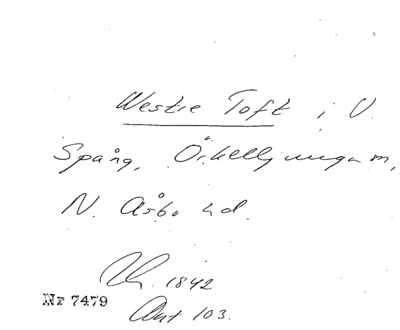 Westre Toft i V.
Spång, Örkelljunga sn,
N. Åsbo hd.
1842
Nr 7479
Akt 103.